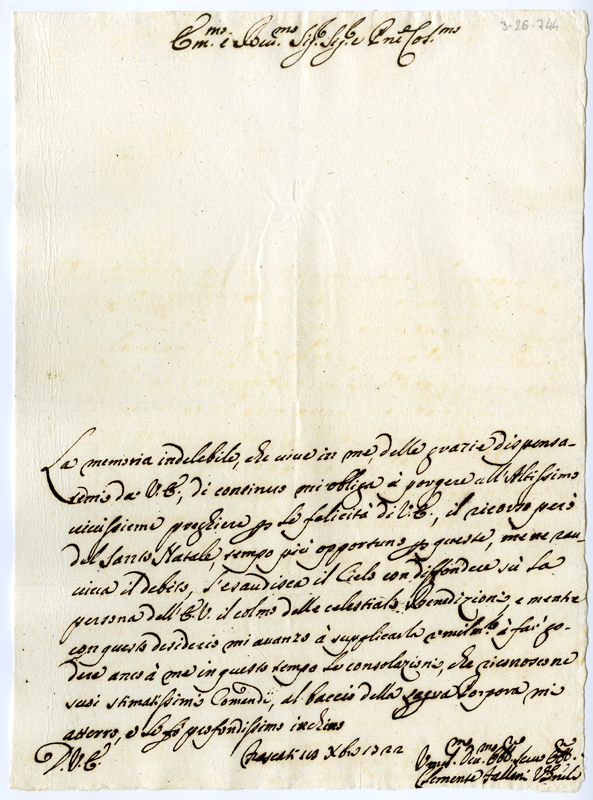 3-26-744
Em.mo e Rev.mo Sig.r Sig.r e P.ne Col.mo
La memoria indelebile, che vive in me delle grazie dispensa-
temi da V.E., di continuo mi obliga à porgere all'Altissimo
vivissime preghiere p le felicità di V.E., il ricorso però
del Santo Natale, tempo più opportuno p queste, me ne rau-
viva il debito, l'esaudisca il Cielo con diffondere sù la
persona dell'E.V. il colmo delle celestiali Benedizioni, e mentre
con questo desiderio mi avanzo à supplicarla umilm.te à far go-
dere anco à me in questo tempo le consolazioni, che riconoscono
suoi stimatissimi Comandi, al baccio della sagra Porpora mi
atterro, e le fò profondissimo inchino
D.V.E. Frascati Xbre 1722
Umil. Dev. Obb. Servo
Clemente